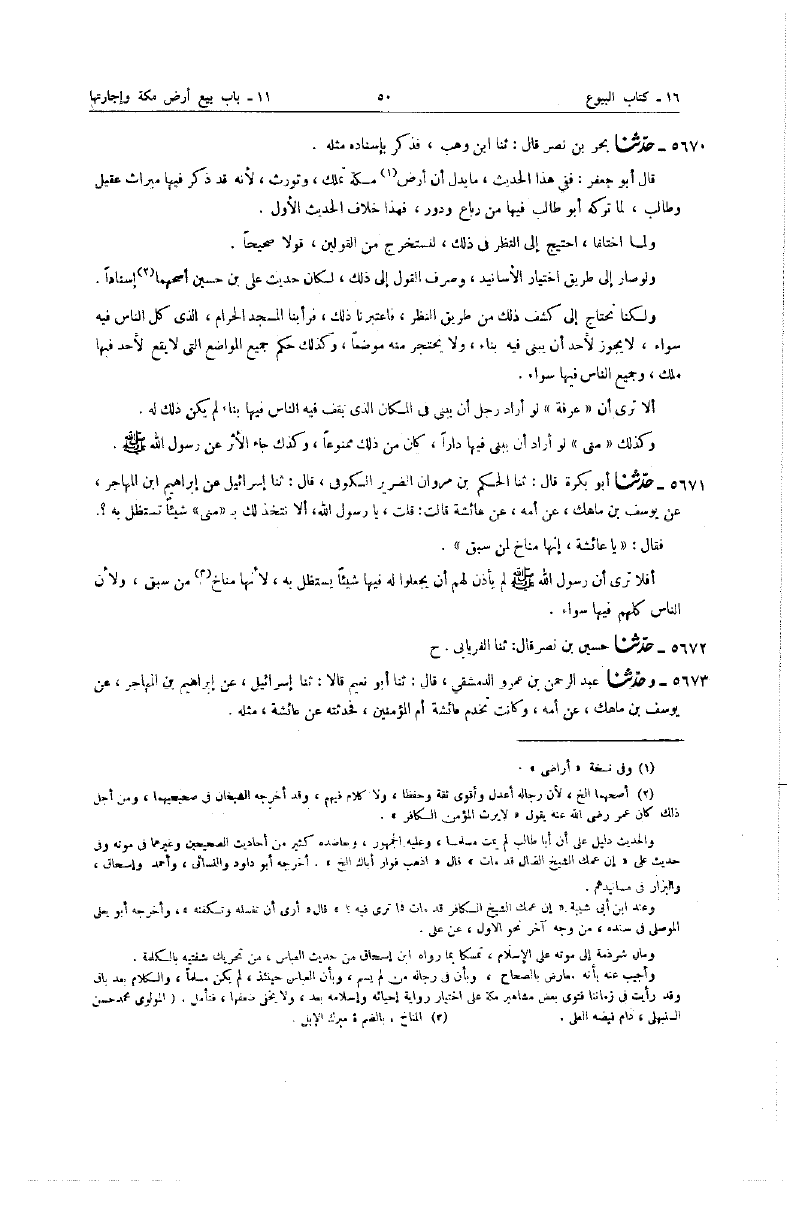 ١٦ ـ كتاب البيوع ٥٠ ١١ ـ باب بيع أرض مكة وإجارتها
٥٦٧٠ ـ حدّثنا بحر بن نصر قال : ثنا ابن وهب ، فذكر بإسناده مثله .
قال أبو جعفر : ففى هذا الحديث ، مايدل أن أرض(١) مكة تملك ، وتورث ، لأنه قد ذكر فيها ميراث عقيل
وطالب ، لما تركه أبو طالب فيها من رباع ودور ، فهذا خلاف الحديث الأول .
ولما اختلفا ، احتيج إلى النظر فى ذلك ، لنستخرج من القولين ، قولا صحيحاً .
ولوصار إلى طريق اختيار الأسانيد ، وصرف القول إلى ذلك ، لكان حديث على بن حسين أصحهما(٢) إسناداً .
ولكنا نحتاج إلى كشف ذلك من طريق النظر ، فاعتبرنا ذلك ، فرأينا المسجد الحرام ، الذى كل الناس فيه
سواء ، لايجوز لأحد أن يبنى فيه بناء ، ولا يحتجر منه موضعاً ، وكذلك حكم جميع المواضع التى لايقع لأحد فيها
ملك ، وجميع الناس فيها سواء .
ألا ترى أن « عرفة » لو أراد رجل أن يبنى فى المكان الذى يقف فيه الناس فيها بناء لم يكن ذلك له .
وكذلك « منى » لو أراد أن يبنى فيها داراً ، كان من ذلك ممنوعاً ، وكذك جاء الأثر عن رسول الله ﷺ .
٥٦٧١ ـ حدّثنا أبو بكرة قال : ثنا الحكم بن مروان الضرير الكوفى ، قال : ثنا إسرائيل عن إبراهيم ابن المهاجر ،
عن يوسف بن ماهك ، عن أمه ، عن عائشة قالت: قلت ، يا رسول الله، ألا نتخذ لك بـ «منى» شيئاً تستظل به ؟.
فقال : « يا عائشة ، إنها مناخ لمن سبق » .
أفلا ترى أن رسول الله ﷺ لم يأذن لهم أن يجعلوا له فيها شيئاً يستظل به ، لأنها مناخ(٣) من سبق ، ولأن
الناس كلهم فيها سواء .
٥٦٧٢ ـ حدّثنا حسين بن نصر قال: ثنا الفريابى . ح
٥٦٧٣ ـ وحدّثنا عبد الرحمن بن عمرو الدمشقي ، قال : ثنا أبو نعيم قالا : ثنا إسرائيل ، عن إبراهيم بن المهاجر ، عن
يوسف بن ماهك ، عن أمه ، وكانت تخدم عائشة أم المؤمنين ، فحدثته عن عائشة ، مثله .
(١) وفى نسخة « أراضى » .
(٢) أصحهما الخ ، لأن رجاله أعدل وأقوى ثقة وحفظا ، ولا كلام فيهم ، وقد أخرجه الشيخان فى صحيحيهما ، ومن أجل
ذلك كان عمر رضى الله عنه يقول « لايرث المؤمن الكافر » .
والحديث دليل على أن أبا طالب لم يمت مسلما ، وعليه الجمهور ، وعاضده كثير من أحاديث الصحيحين وغيرهما فى موته وفى
حديث على « إن عمك الشيخ الضال قد مات » قال « اذهب فوار أباك الخ » . أخرجه أبو داود والنسائى ، وأحمد وإسحاق ،
والبزار فى مسانيدهم .
وعند ابن أبى شيبة « إن عمك الشيخ الكافر قد مات فا ترى فيه ؟ » قال« أرى أن تغسله وتكفنه » ، وأخرجه أبو يعلى
الموصلى فى سنده ، من وجه آخر نحو الاول ، عن على .
ومال شرذمة إلى موته على الإسلام ، تمسكا بما رواه ابن إسحاق من حديث العباس ، من تحريك شفتيه بالكلمة .
وأجيب عنه بأنه معارض بالصحاح ، وبأن فى رجاله من لم يسم ، وبأن العباس حينئذ ، لم يكن مسلماً ، والكلام بعد باق
وقد رأيت فى زماننا فتوى بعض مشاهير مكة على اختيار رواية إحيائه وإسلامه بعد ، ولا يخفى ضعفها ، فتأمل . ( المولوى محمد حسن
السنبهلى ، دام فيضه العلى . (٣) المناخ ، بالضم : مبرك الإبل .